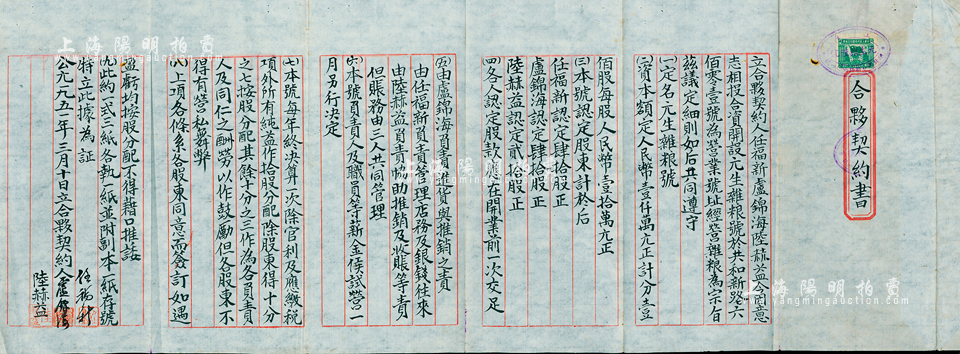 合夥契約書
立合夥契約人任福新盧錦海陸赫益今因意
志相投合資開設元生雜粮號於共和新路六
佰零壹號為營業號址經營雜粮為宗旨
茲議定細則如后共同遵守
(一)定名元生雜粮號
(二)資本額定人民幣壹仟萬元正計分壹
佰股每股人民幣壹拾萬元正
(三)本號認定股東計於后
任福新認定肆拾股正
盧錦海認定肆拾股正
陸赫益認定貳拾股正
(四)各人認定股款應在開業前一次交足
(五)由盧錦海負責進貨與推銷之責
由任福新負責管理店務及銀錢往來
由陸赫益負責協助推銷及收賬等責
但賬務由三人共同管理
(六)本號負責人及職員等薪金俟試營一
月另行決定
(七)本號每年終決算一次除官利及應繳稅
項外所有純益作拾股分配除股東得十分
之七按股分配其餘十分之三作為各員責
人及同仁之酬勞以作鼓勵但各股東不
得有營私舞弊
(八)上項各條系各股東同意而簽訂如遇
盈虧均按股分配不得藉口推諉
(九)此約一式三紙各執一紙並附副本一紙存號
特立此據為証
公元一九五一年三月十日立合夥契約人
任福新
盧錦海
陸赫益
上海陽明拍賣
上海陽明拍賣
上海陽明拍賣
yangmingauction.com